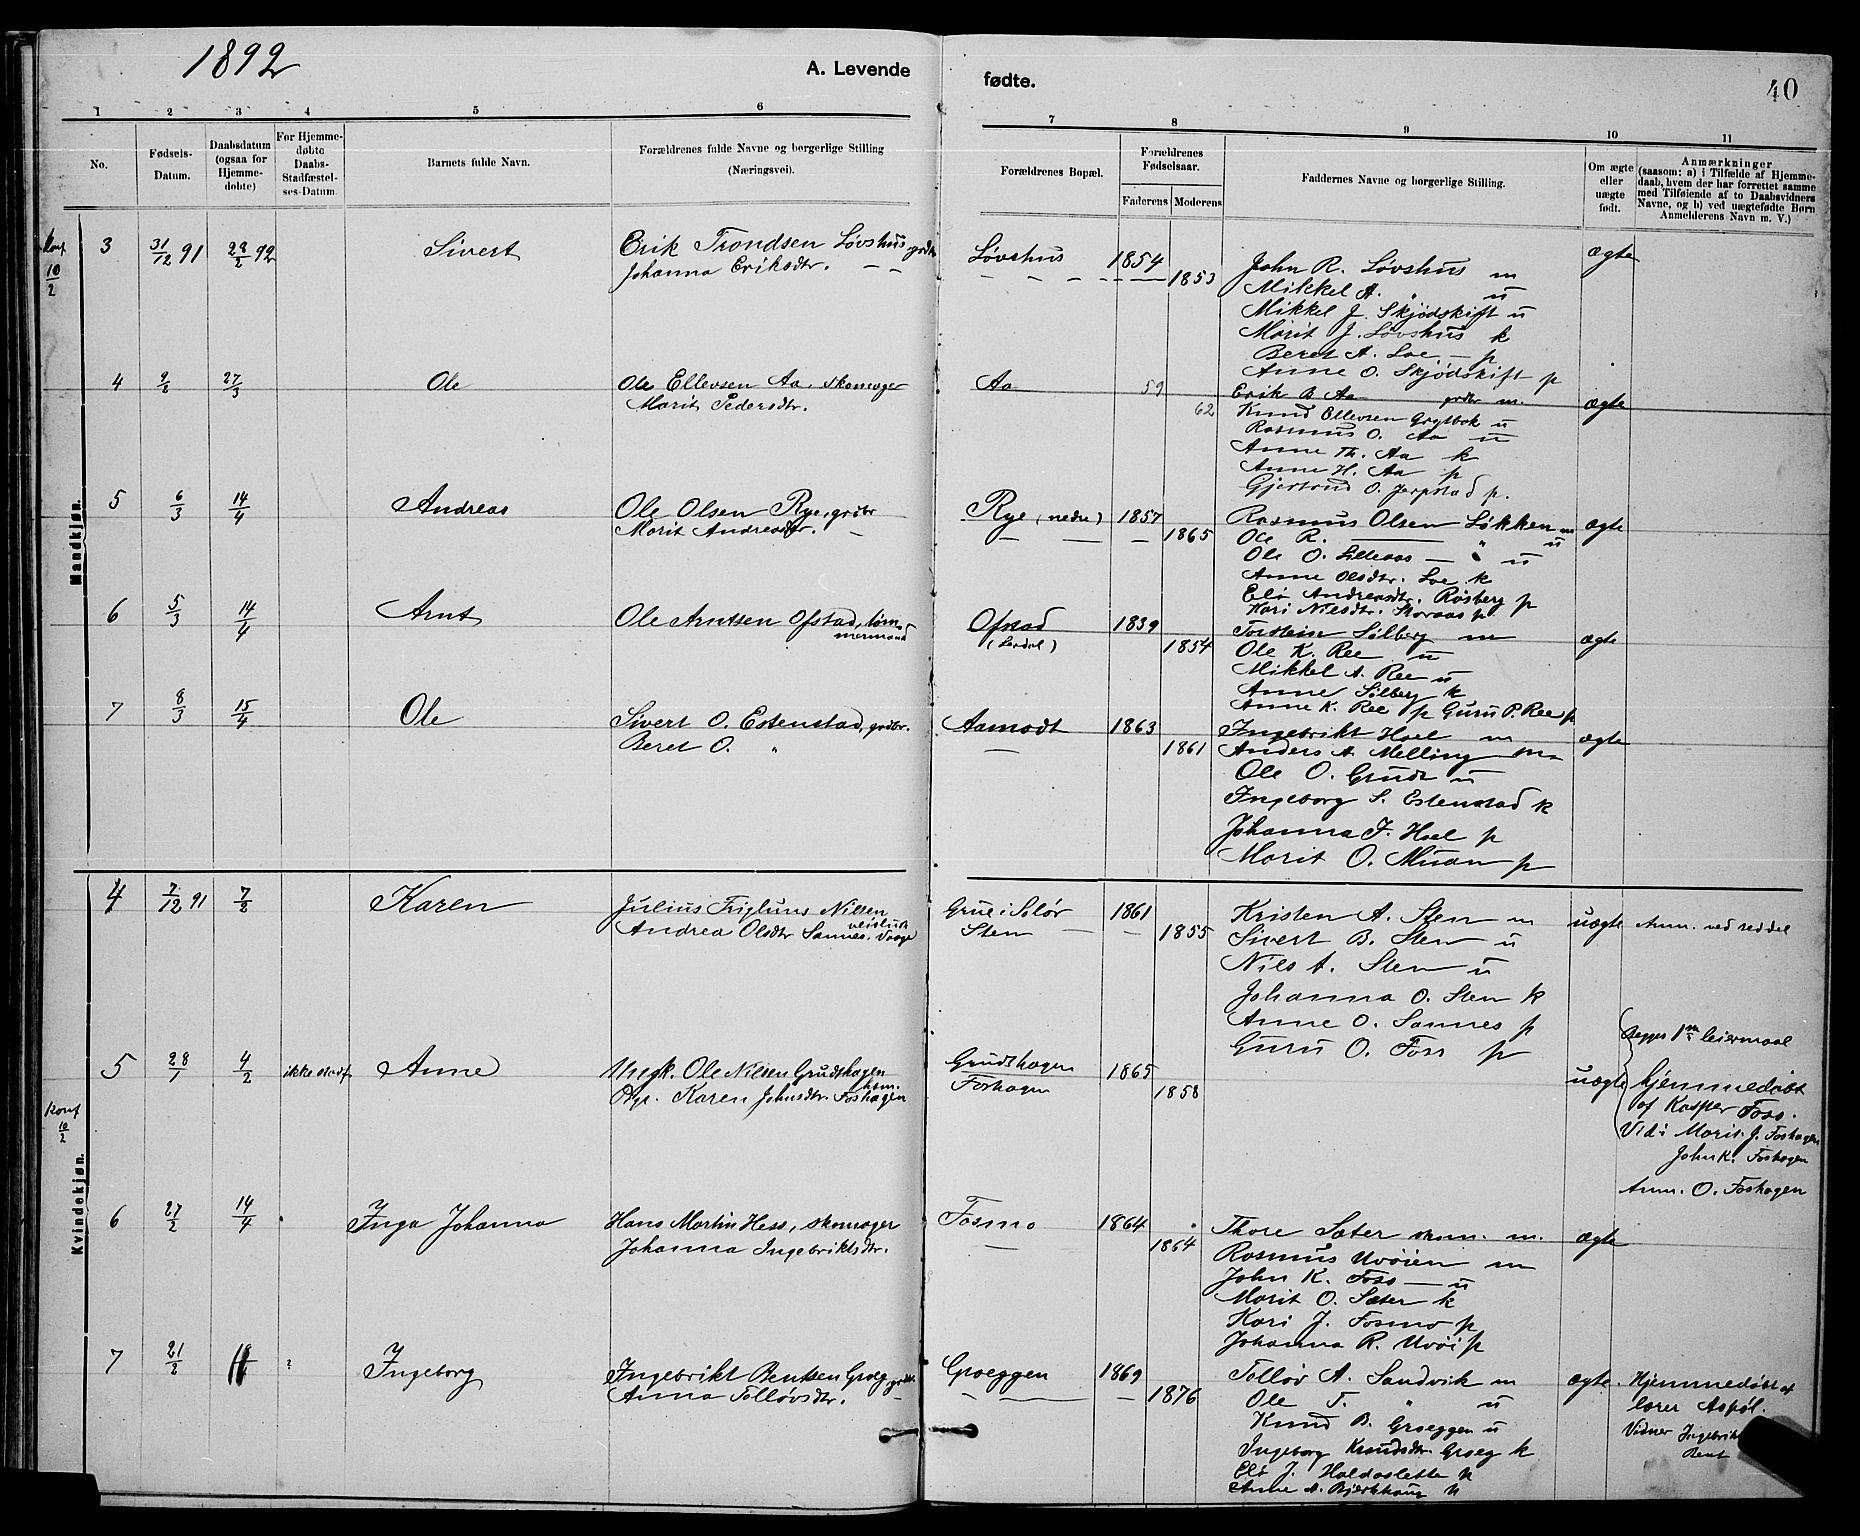 1892
A. Levende fødte.
40
1 2 3 4 5 6 7 8 9 10 11
No.
Fødsels-Datum.
Daabsdatum (ogsaa for Hjemmedøbte)
For Hjemmedøbte Daabs-Stadfæstelses-Datum.
Barnets fulde Navn.
Forældrenes fulde Navne og borgerlige Stilling (Næringsvei).
Forældrenes Bopæl.
Forældrenes Fødselsaar.
Faderens Moderens
Faddernes Navne og borgerlige Stilling.
Om ægte eller uægte født.
Anmærkninger
(saasom: a) i Tilfælde af Hjemmedaab, hvem der har forrettet samme med Tilføiende af to Daabsvidners Navne, og b) ved uægtefødte Børn Anmelderens Navn m. V.)
Mandkjøn.
Konf 10/2
3 31/12 91 28/2 92 Sivert
Erik Trondsen Løvshus, grdbr
Johanna Eriksdtr. — —
Løvshus 1854 1853
John R. Løvshus m
Mikkel A. " u
Mikkel J. Skjødskift u
Marit J. Løvshus k
Beret A. Loe — p
Anne O. Skjødskift p
ægte
4 9/8 27/3 Ole
Ole Ellevsen Aa, skomager
Marit Pedersdtr.
Aa 59 62
Erik B Aa grdbr m.
Knud Ellevsen Grytbak u
Rasmus O. Aa u
Anne Th. Aa k
Anne H. Aa p
Gjertrud O. Jerpstad p.
ægte
5 6/3 14/4 Andreas
Ole Olsen Rye, grdbr
Marit Andreasdtr. —
Rye (nedre) 1857 1865
Rasmus Olsen Løkken m
Ole R. — " u
Ole O. Lilleaas — " u
Anne Olsdtr. Loe k
Elø Andreasdtr. Røsberg p
Kari Nilsdtr. Skoraas p.
ægte
6 5/3 14/4 Arnt
Ole Arntsen Ofstad, tøm-
mermand
Ofstad 1839 1854
Torstein Sølberg m
Ole K. Ree u
Mikkel A. Ree u
Anne Sølberg k
Anne K. Ree p Guru P. Ree p
ægte
7 8/3 15/4 Ole
Sivert O. Estenstad, grdbr.
Beret O. "
Aamodt 1863 1861
Ingebrikt Hoel m
Anders A. Melling m
Ole O. Grudt u
Ingeborg S. Estenstad k
Johanna J. Hoel p
Marit O. Muan p
ægte
Kvindekjøn.
4 7/12 91 7/2 Karen
Julius Nilsen
Andrea Olsdtr Sannes, Vaage
Grue i Solør 1861
Sten — 1855
Kristen A. Sten m
Sivert B. Sten u
Nils A. Sten u
Johanna O. Sten k
Anne O. Sannes p
Guru O. Foss p
uægte Anm. ved seddel
Konf 10/2
5 28/1 4/2 ikke stadf Anne
Ungk. Ole Nilsen Grudthagen
Pige Karen Johnsdtr. Foshagen
Grudthagen 1865
Foshagen 1858
uægte
Begges 1ste leiermaal
hjemmedøbt
af Kasper Foss.
Vid: Marit J. Foshagen
John K. Foshagen
Anm. O. Foshagen
6 27/2 14/4 Inga Johanna
Hans Martin Hess, skomager
Johanna Ingebriktsdtr.
Fosmo 1864
— 1864
Thore Sæter skom. m.
Rasmus Uvøien m
John K. Foss — u
Marit O. Sæter k
Kari J. Fosmo p
Johanna R. Uvøi p
ægte
7 21/2 ? Ingeborg
Ingebrikt Bentsen Groeg, grdbr.
Anna Tolløvsdtr. —
Groeggen 1869
— 1876
Tolløv A. Sandvik m
Ole T. " u
Knud B. Groeggen u
Ingeborg Knudsdtr Groeg k
Elø J. Haldoslette p
Anne A. Bjerkhaug p
ægte.
Hjemmedøbt af
lærer Aspøl.
Vidner Ingebrikt
Bent